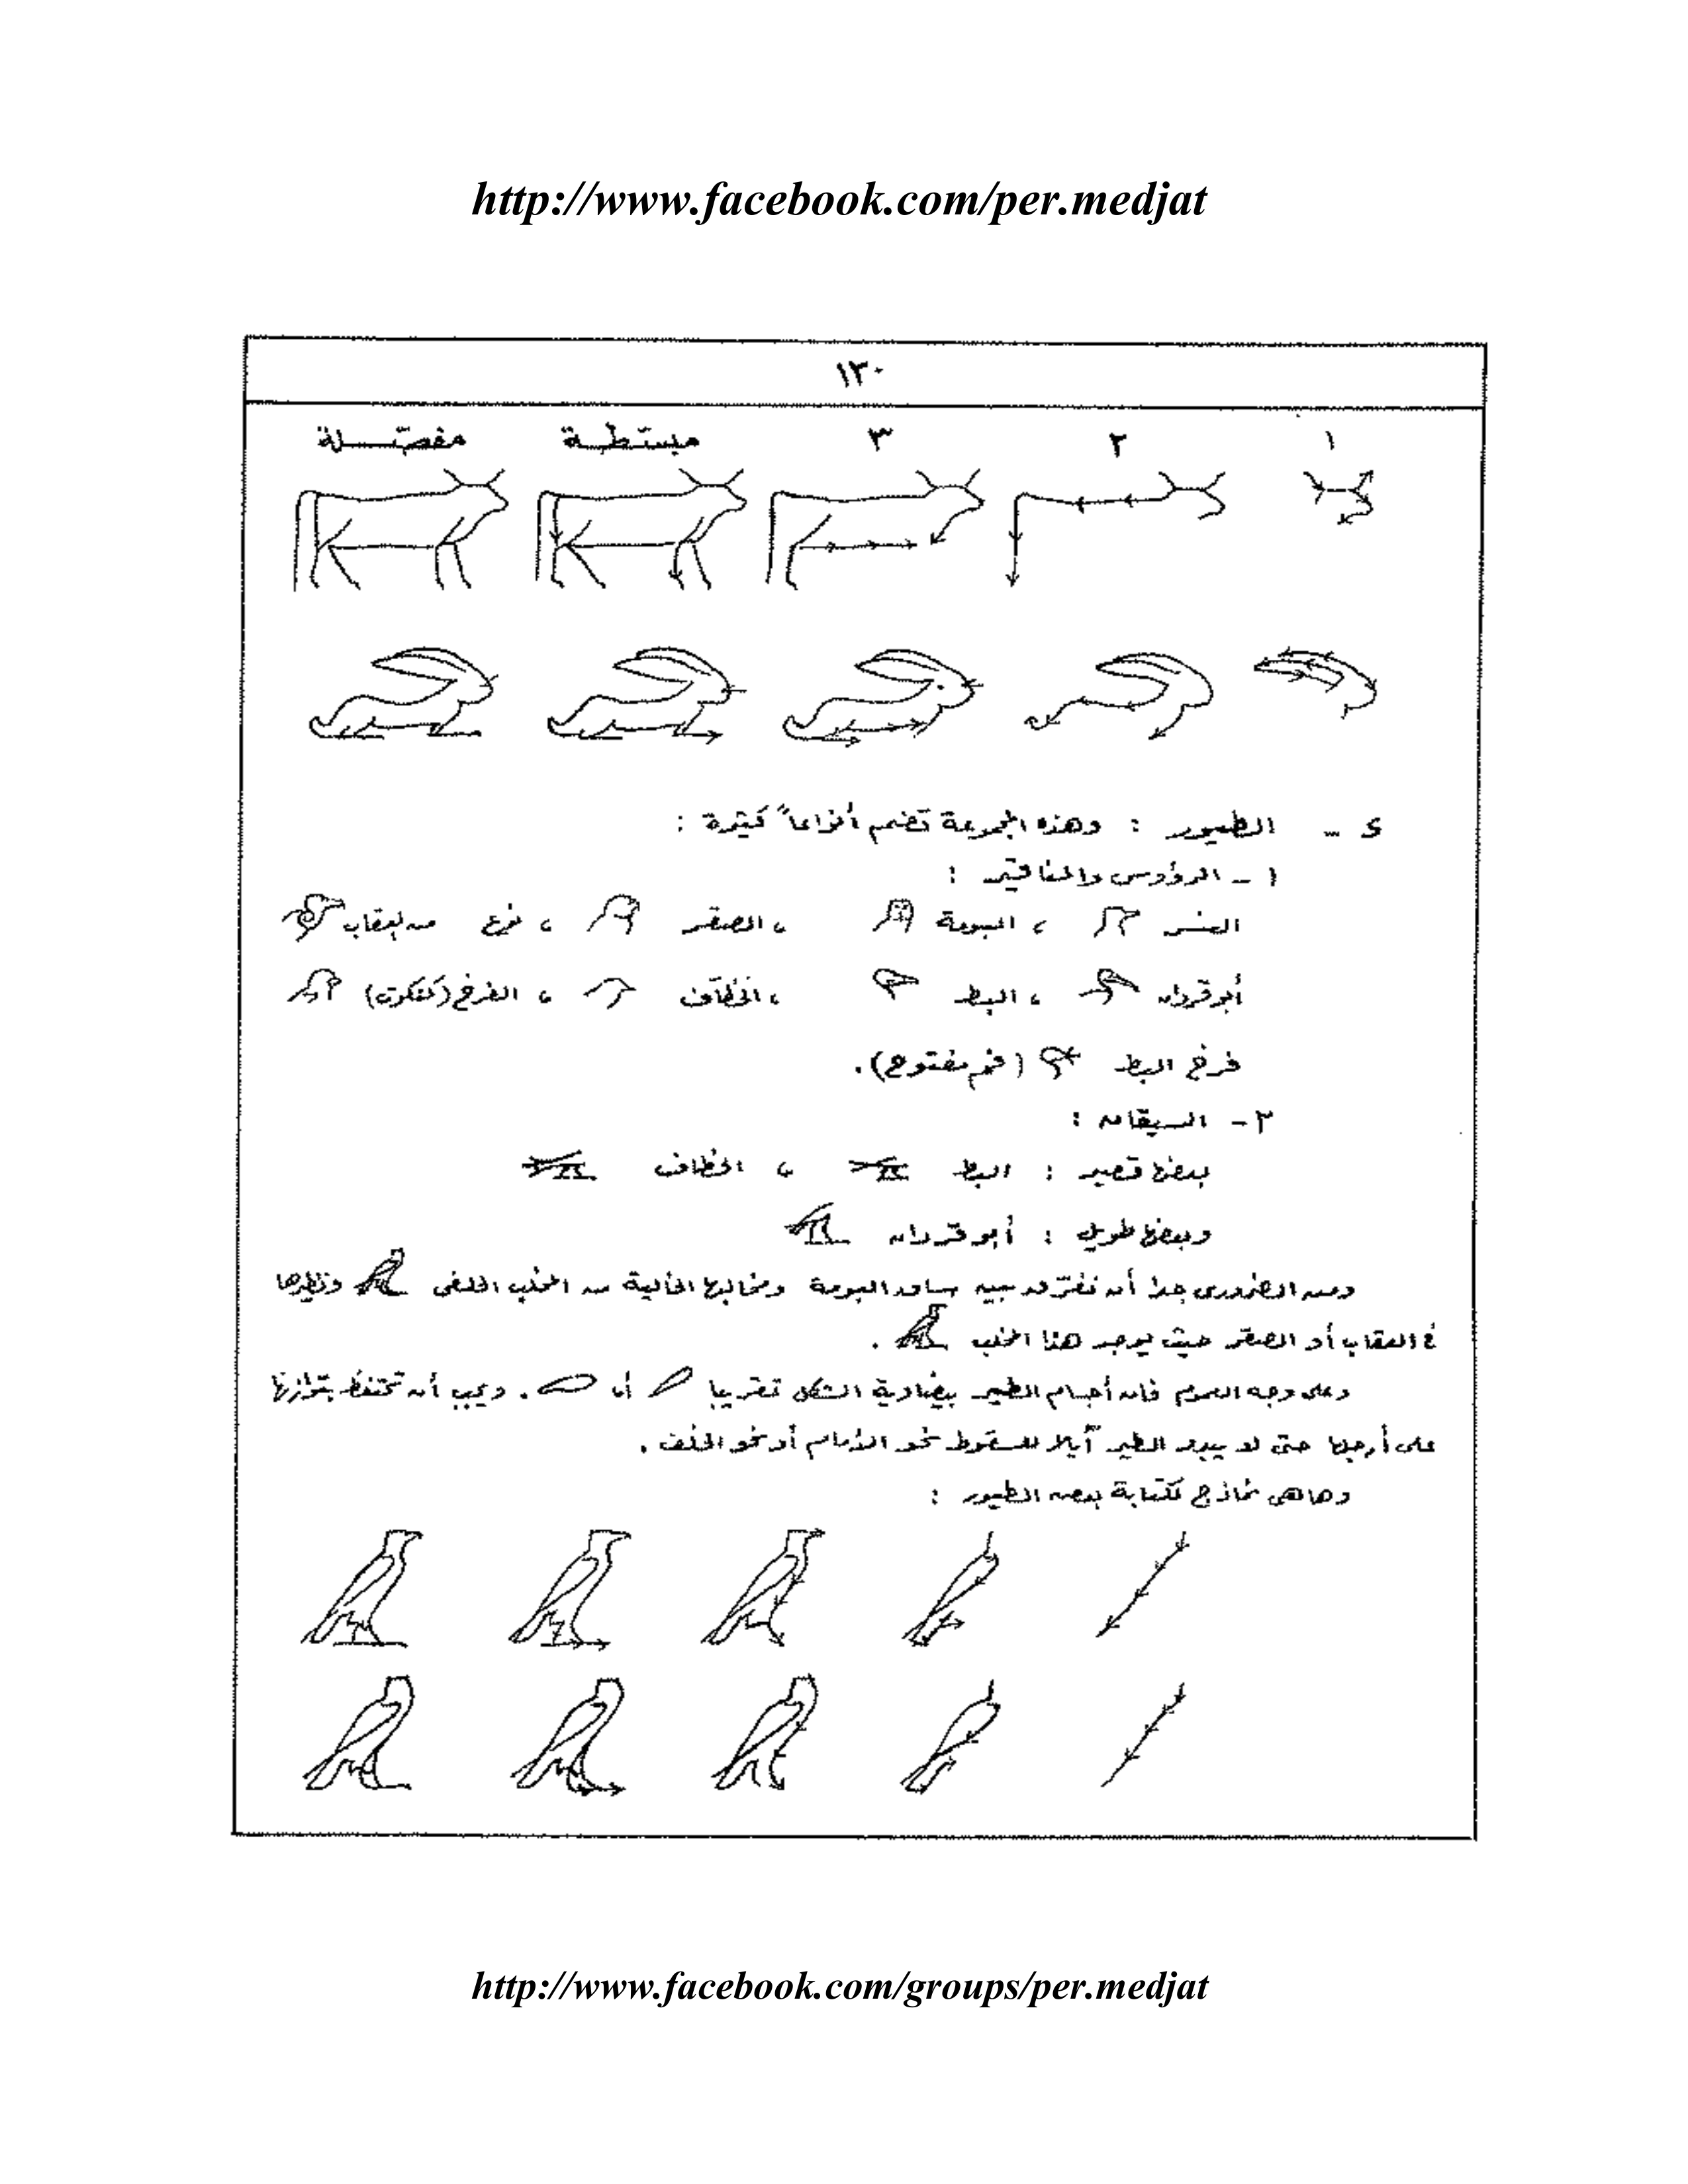 http://www.facebook.com/per.medjat
١٣٠
١ ٢ ٣ مبسّطة مفصّلة
٤ – الطيور : وهذه المجموعة تضم أنواعاً كثيرة :
١ – الرؤوس والمناقير :
النسر ، البومة ، الصقر ، نوع من العقاب
أبو قردان ، البط ، الخطّاف ، الفرخ (كتكوت)
فرخ البط (فم مفتوح).
٢ – السيقان :
بعضها قصير : البط ، الخطاف
وبعضها طويل : أبو قردان
ومن الضرورى جدا أن نفترق بين ساق البومة ومخالبها الخالية من المخلب الخلفى ونظيرها
فى العقاب أو الصقر حيث يوجد هذا المخلب .
وعلى وجه العموم فان أجسام الطير بيضاوية الشكل تقريبا أو . ويجب أن تحتفظ بتوازنها
على أرجلها حتى لا يبدو الطير آيلا للسقوط نحو الأمام أو نحو الخلف .
وها هى نماذج لكتابة بعض الطيور :
http://www.facebook.com/groups/per.medjat